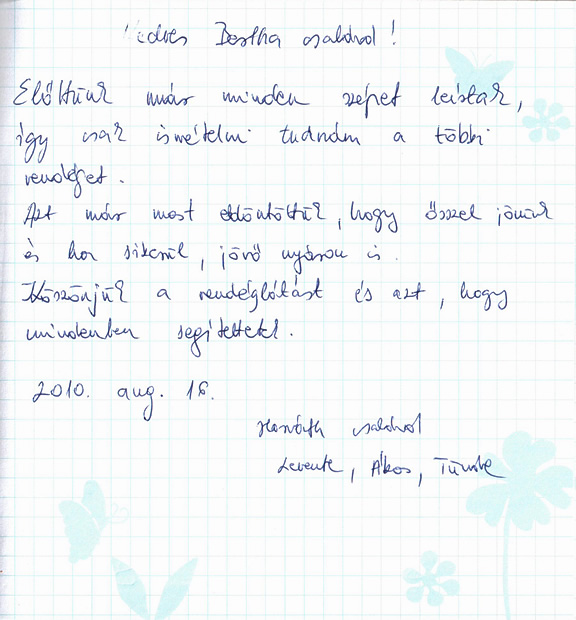 Kedves Bertha család!
Előttünk már minden szépet leírtak,
így csak ismételni tudnám a többi
vendéget.
Azt már most eldöntöttük, hogy ősszel jövünk
és ha sikerül, jövő nyáron is.
Köszönjük a vendéglátást és azt, hogy
mindenben segítettek.
2010. aug. 18.
Horváth család
Levente, Ákos, Tünde